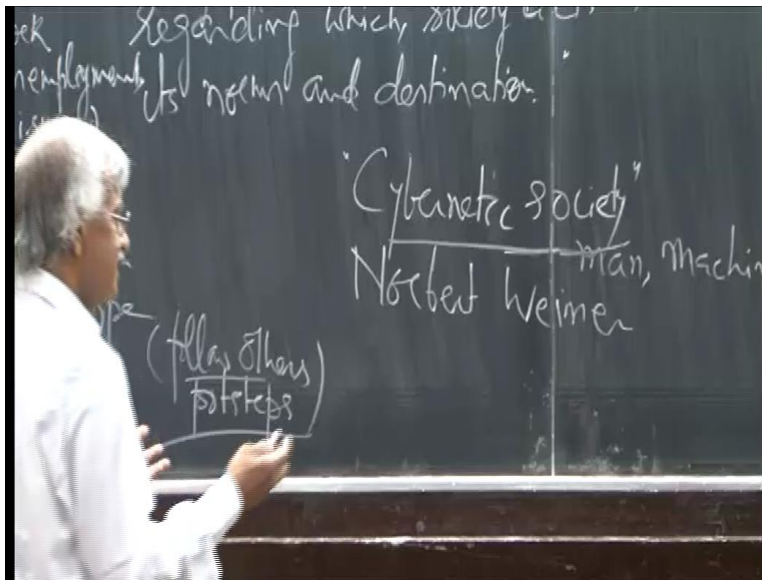 regarding which, society
its norms and destination.
"Cybernetic society"
man, Machin
Norbert Weimer
(follow others
footsteps)